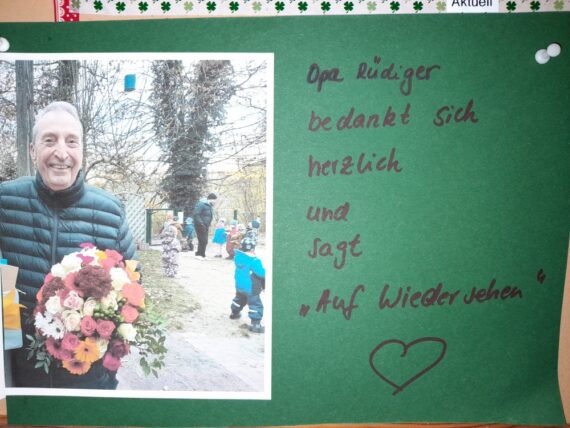 Aktuell
Opa Rüdiger
bedankt sich
herzlich
und
sagt
„Auf Wiedersehen“